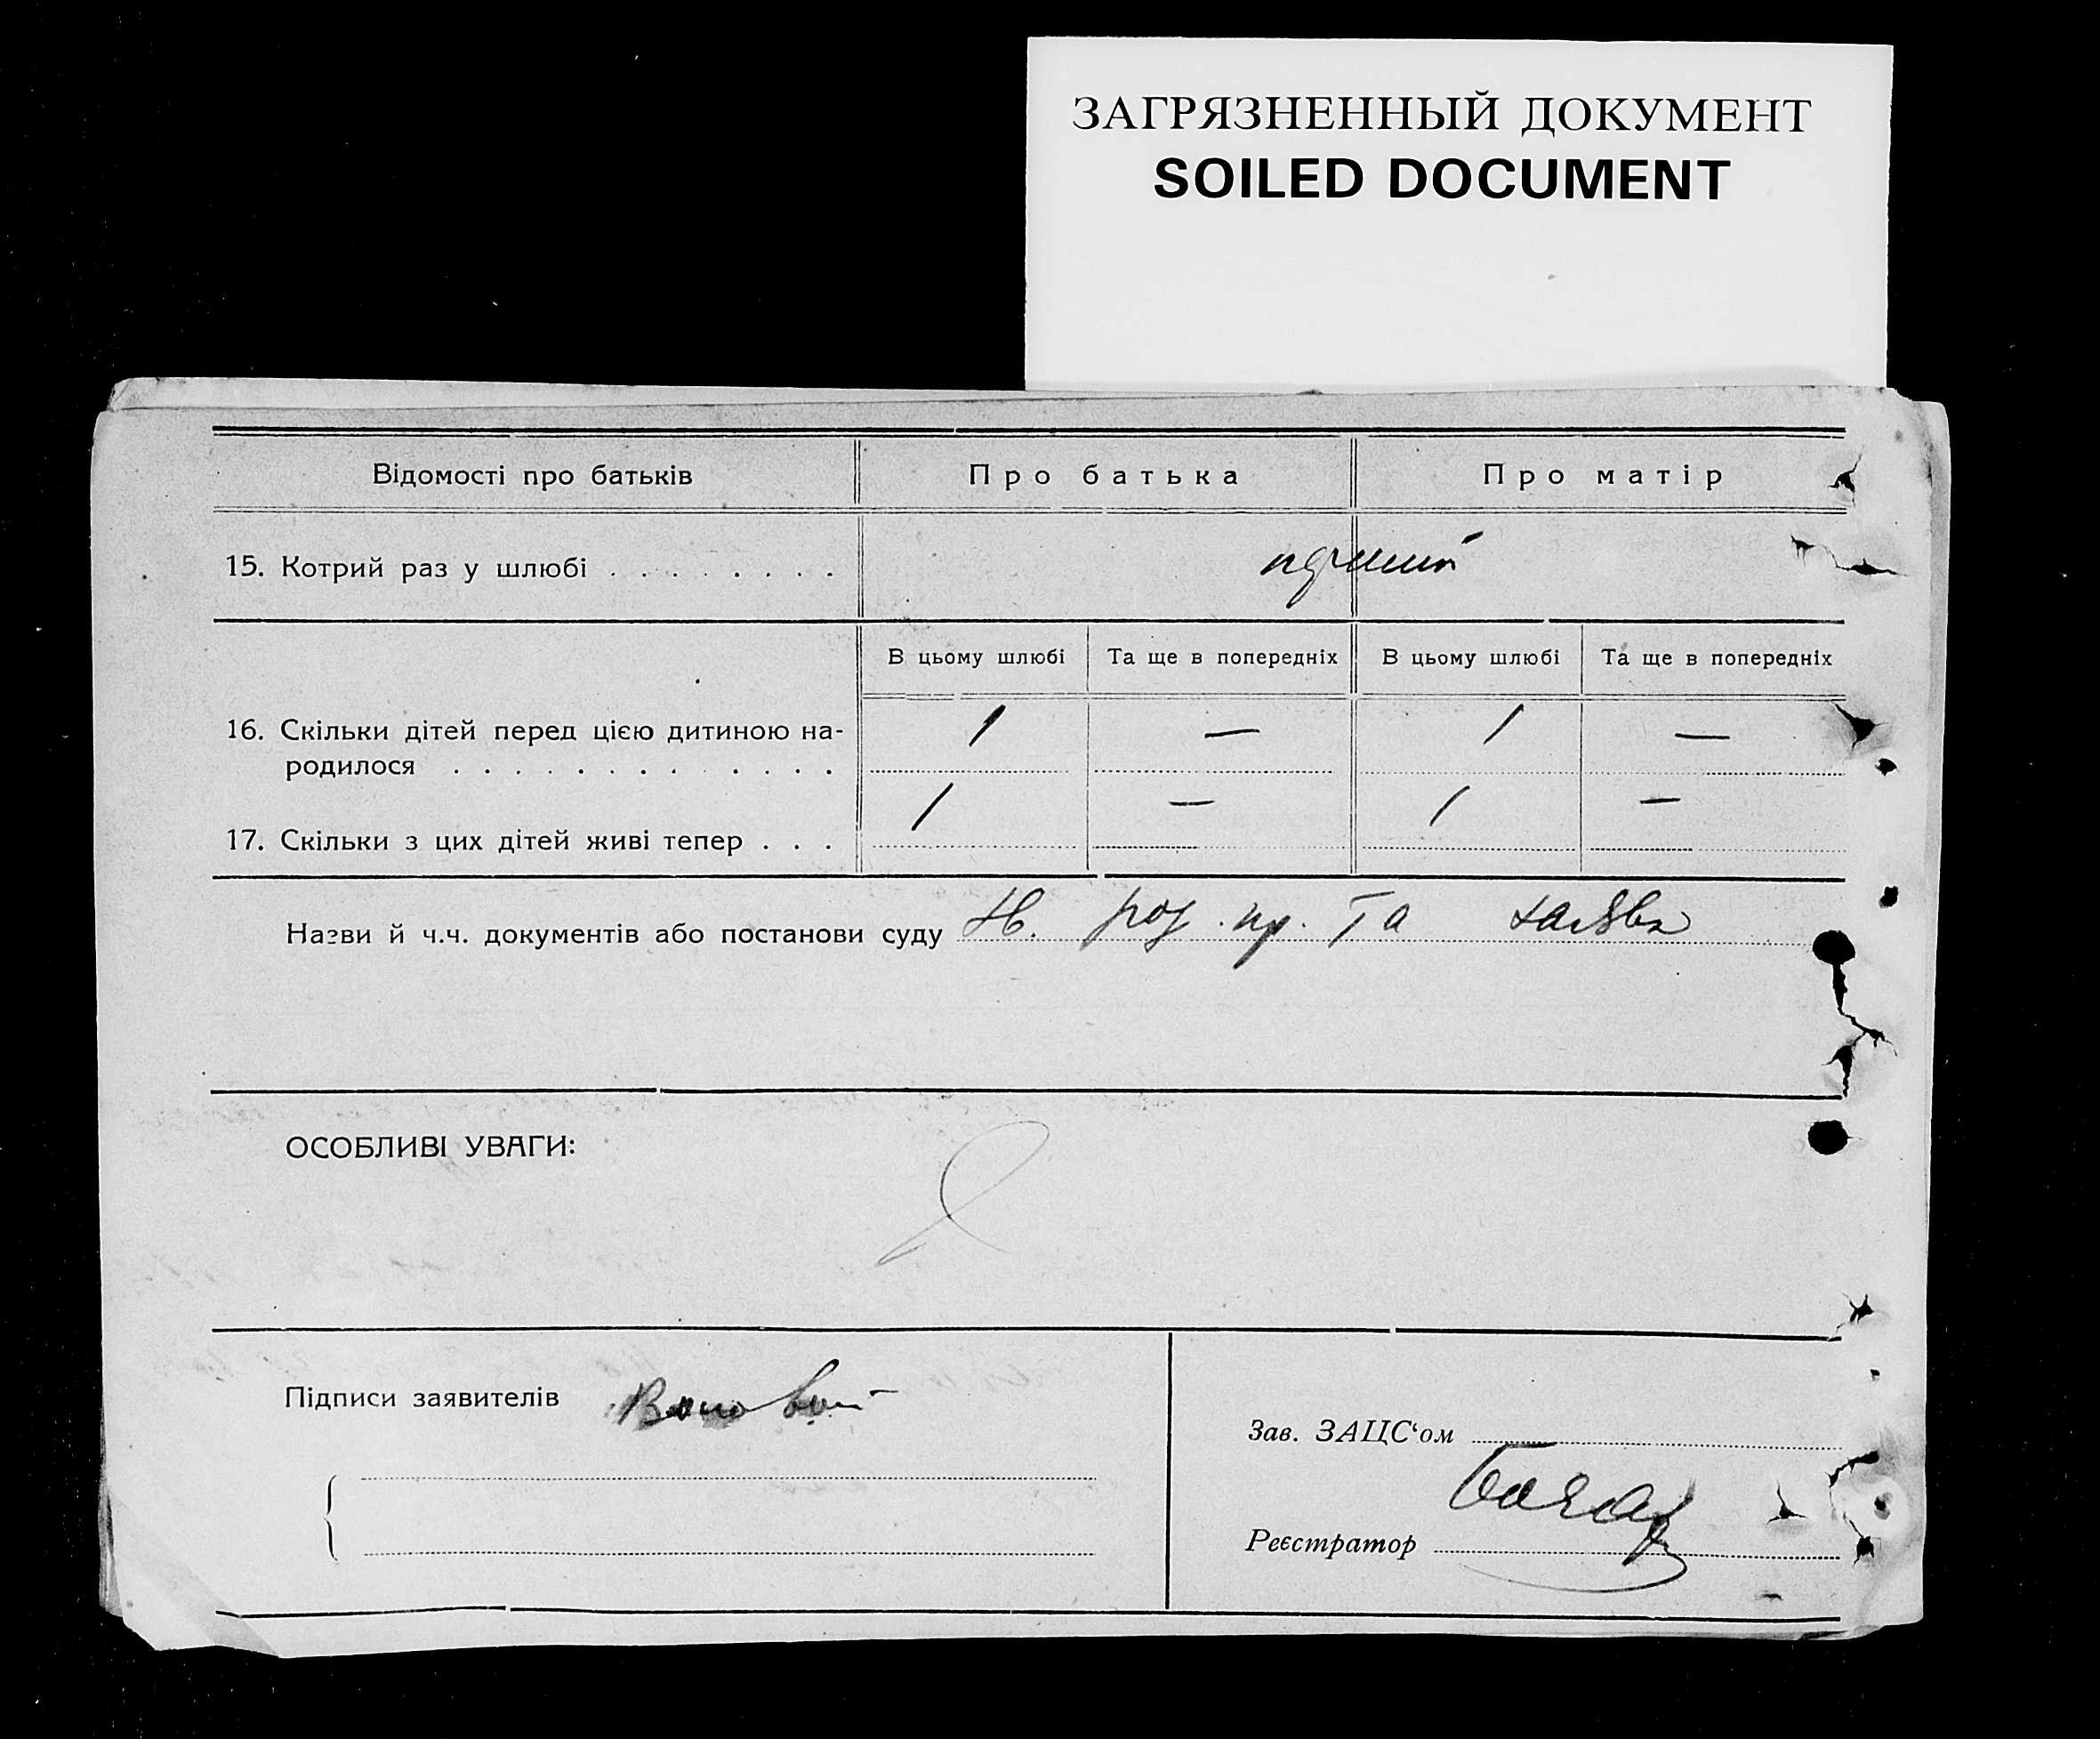 ЗАГРЯЗНЕННЫЙ ДОКУМЕНТ
SOILED DOCUMENT
Відомості про батьків Про батька Про матір
15. Котрий раз у шлюбі . . . . . . . .
В цьому шлюбі Та ще в попередніх В цьому шлюбі Та ще в попередніх
16. Скільки дітей перед цією дитиною на- 1 — 1 —
родилося . . . . . . . . . . . . .
17. Скільки з цих дітей живі тепер . . . 1 — 1 —
Назви й ч.ч. документів або постанови суду Та заява
ОСОБЛИВІ УВАГИ:
Підписи заявителів
Зав. ЗАЦС‘ом
Реєстратор